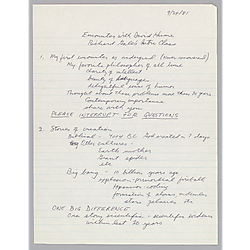 9/24/81
Encounters with David Hume
Richard Gale's Intro Class
1. My first encounter as undergrad
My favorite philosopher of all time
Clarity of intellect
Beauty of language
delightful sense of humor
Thought about these problems more than 30 years
Contemporary importance
share with you
PLEASE INTERRUPT FOR QUESTIONS
2. Stories of creation
Biblical - 4004 BC God created in 7 days
Other cultures -
Earth mother
Giant spider
etc
Big bang - 10 billion years ago
explosion - primordial fireball
expansion - cooling
formation of atoms, molecules
stars, galaxies, etc
ONE BIG DIFFERENCE:
One story scientific - scientific evidence
within last 20 years